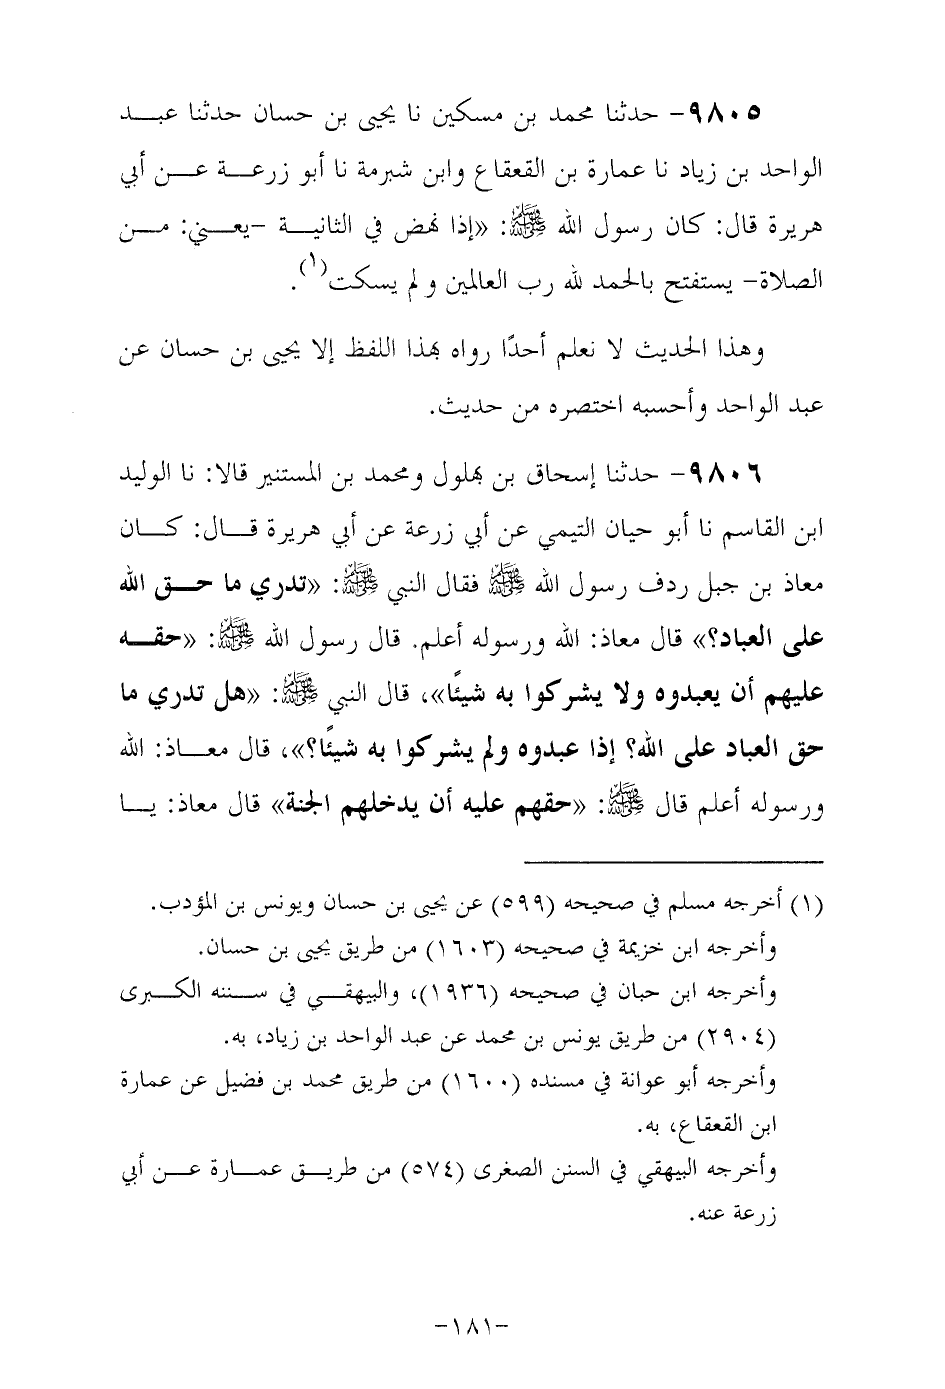 ٩٨٠٥- حدثنا محمد بن مسكين نا يحيى بن حسان حدثنا عبد
الواحد بن زياد نا عمارة بن القعقاع وابن شبرمة نا أبو زرعة عن أبي
هريرة قال: كان رسول الله ﷺ: «إذا نهض في الثانية -يعني: من
الصلاة- يستفتح بالحمد لله رب العالمين و لم يسكت(١).
وهذا الحديث لا نعلم أحدًا رواه بهذا اللفظ إلا يحيى بن حسان عن
عبد الواحد وأحسبه اختصره من حديث.
٩٨٠٦- حدثنا إسحاق بن بهلول ومحمد بن المستنير قالا: نا الوليد
ابن القاسم نا أبو حيان التيمي عن أبي زرعة عن أبي هريرة قال: كان
معاذ بن جبل ردف رسول الله ﷺ فقال النبي ﷺ: «تدري ما حق الله
على العباد؟» قال معاذ: الله ورسوله أعلم. قال رسول الله ﷺ: «حقه
عليهم أن يعبدوه ولا يشركوا به شيئًا»، قال النبي ﷺ: «هل تدري ما
حق العباد على الله؟ إذا عبدوه ولم يشركوا به شيئًا؟»، قال معاذ: الله
ورسوله أعلم قال ﷺ: «حقهم عليه أن يدخلهم الجنة» قال معاذ: يا
(١) أخرجه مسلم في صحيحه (٥٩٩) عن يحيى بن حسان ويونس بن المؤدب.
وأخرجه ابن خزيمة في صحيحه (١٦٠٣) من طريق يحيى بن حسان.
وأخرجه ابن حبان في صحيحه (١٩٣٦)، والبيهقي في سننه الكبرى
(٢٩٠٤) من طريق يونس بن محمد عن عبد الواحد بن زياد، به.
وأخرجه أبو عوانة في مسنده (١٦٠٠) من طريق محمد بن فضيل عن عمارة
ابن القعقاع، به.
وأخرجه البيهقي في السنن الصغرى (٥٧٤) من طريق عمارة عن أبي
زرعة عنه.
-١٨١-